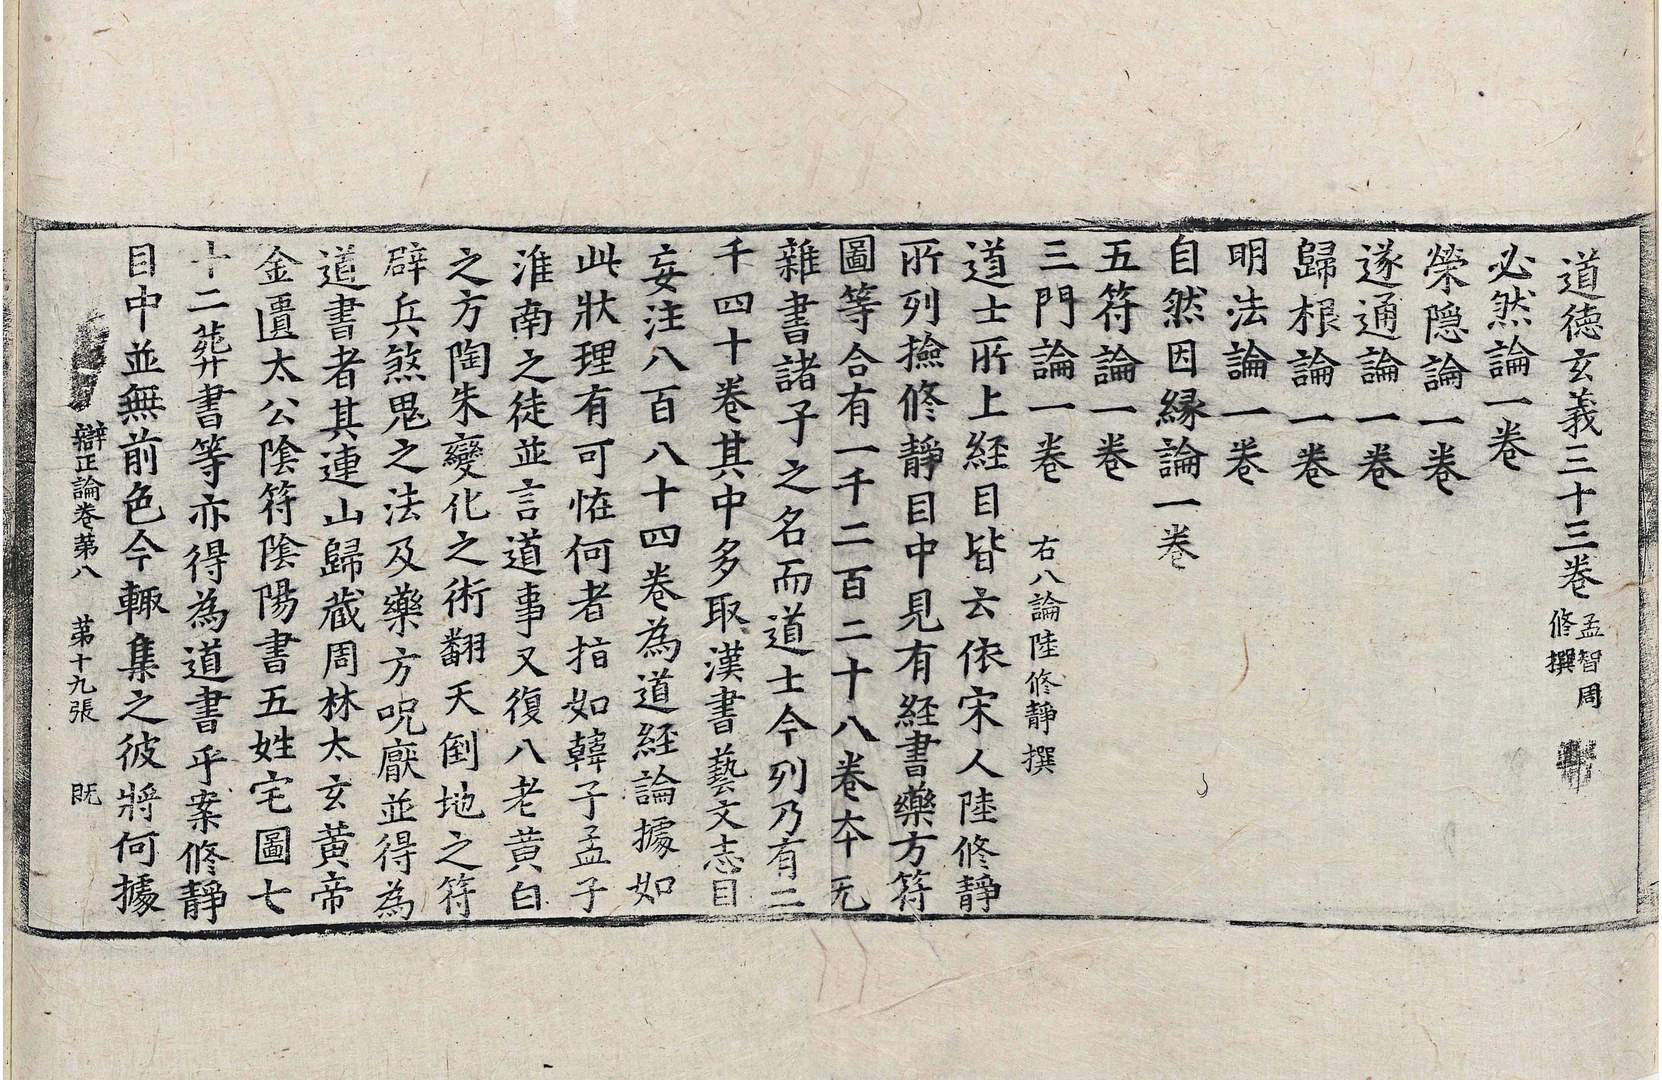 道德玄義三十三卷孟智周修撰
必然論一卷
榮隱論一卷
遂通論一卷
歸根論一卷
明法論一卷
自然因緣論一卷
五符論一卷
三門論一卷 右八論陸修靜撰
道士所上經目皆云依宋人陸修靜
所列撿修靜目中見有經書藥方符
圖等合有一千二百二十八卷夲无
雜書諸子之名而道士今列乃有二
千四十卷其中多取漢書藝文志目
妄注八百八十四卷為道經論據如
此狀理有可恠何者指如韓子孟子
淮南之徒並言道事又復八老黃白
之方陶朱變化之術翻天倒地之符
辟兵煞鬼之法及藥方呪厭並得為
道書者其連山歸藏周林太玄黃帝
金匱太公陰符陰陽書五姓宅圖七
十二葬書等亦得為道書乎案修靜
目中並無前色今輙集之彼將何據
辯正論卷第八 第十九張 既